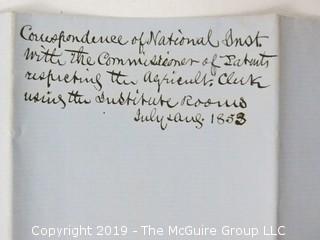 Correspondence of National Inst.
with the Commissioner of Patents
respecting the Agricult. Clerk
using the Institute Rooms
July & Aug 1853
Copyright 2019 - The McGuire Group LLC